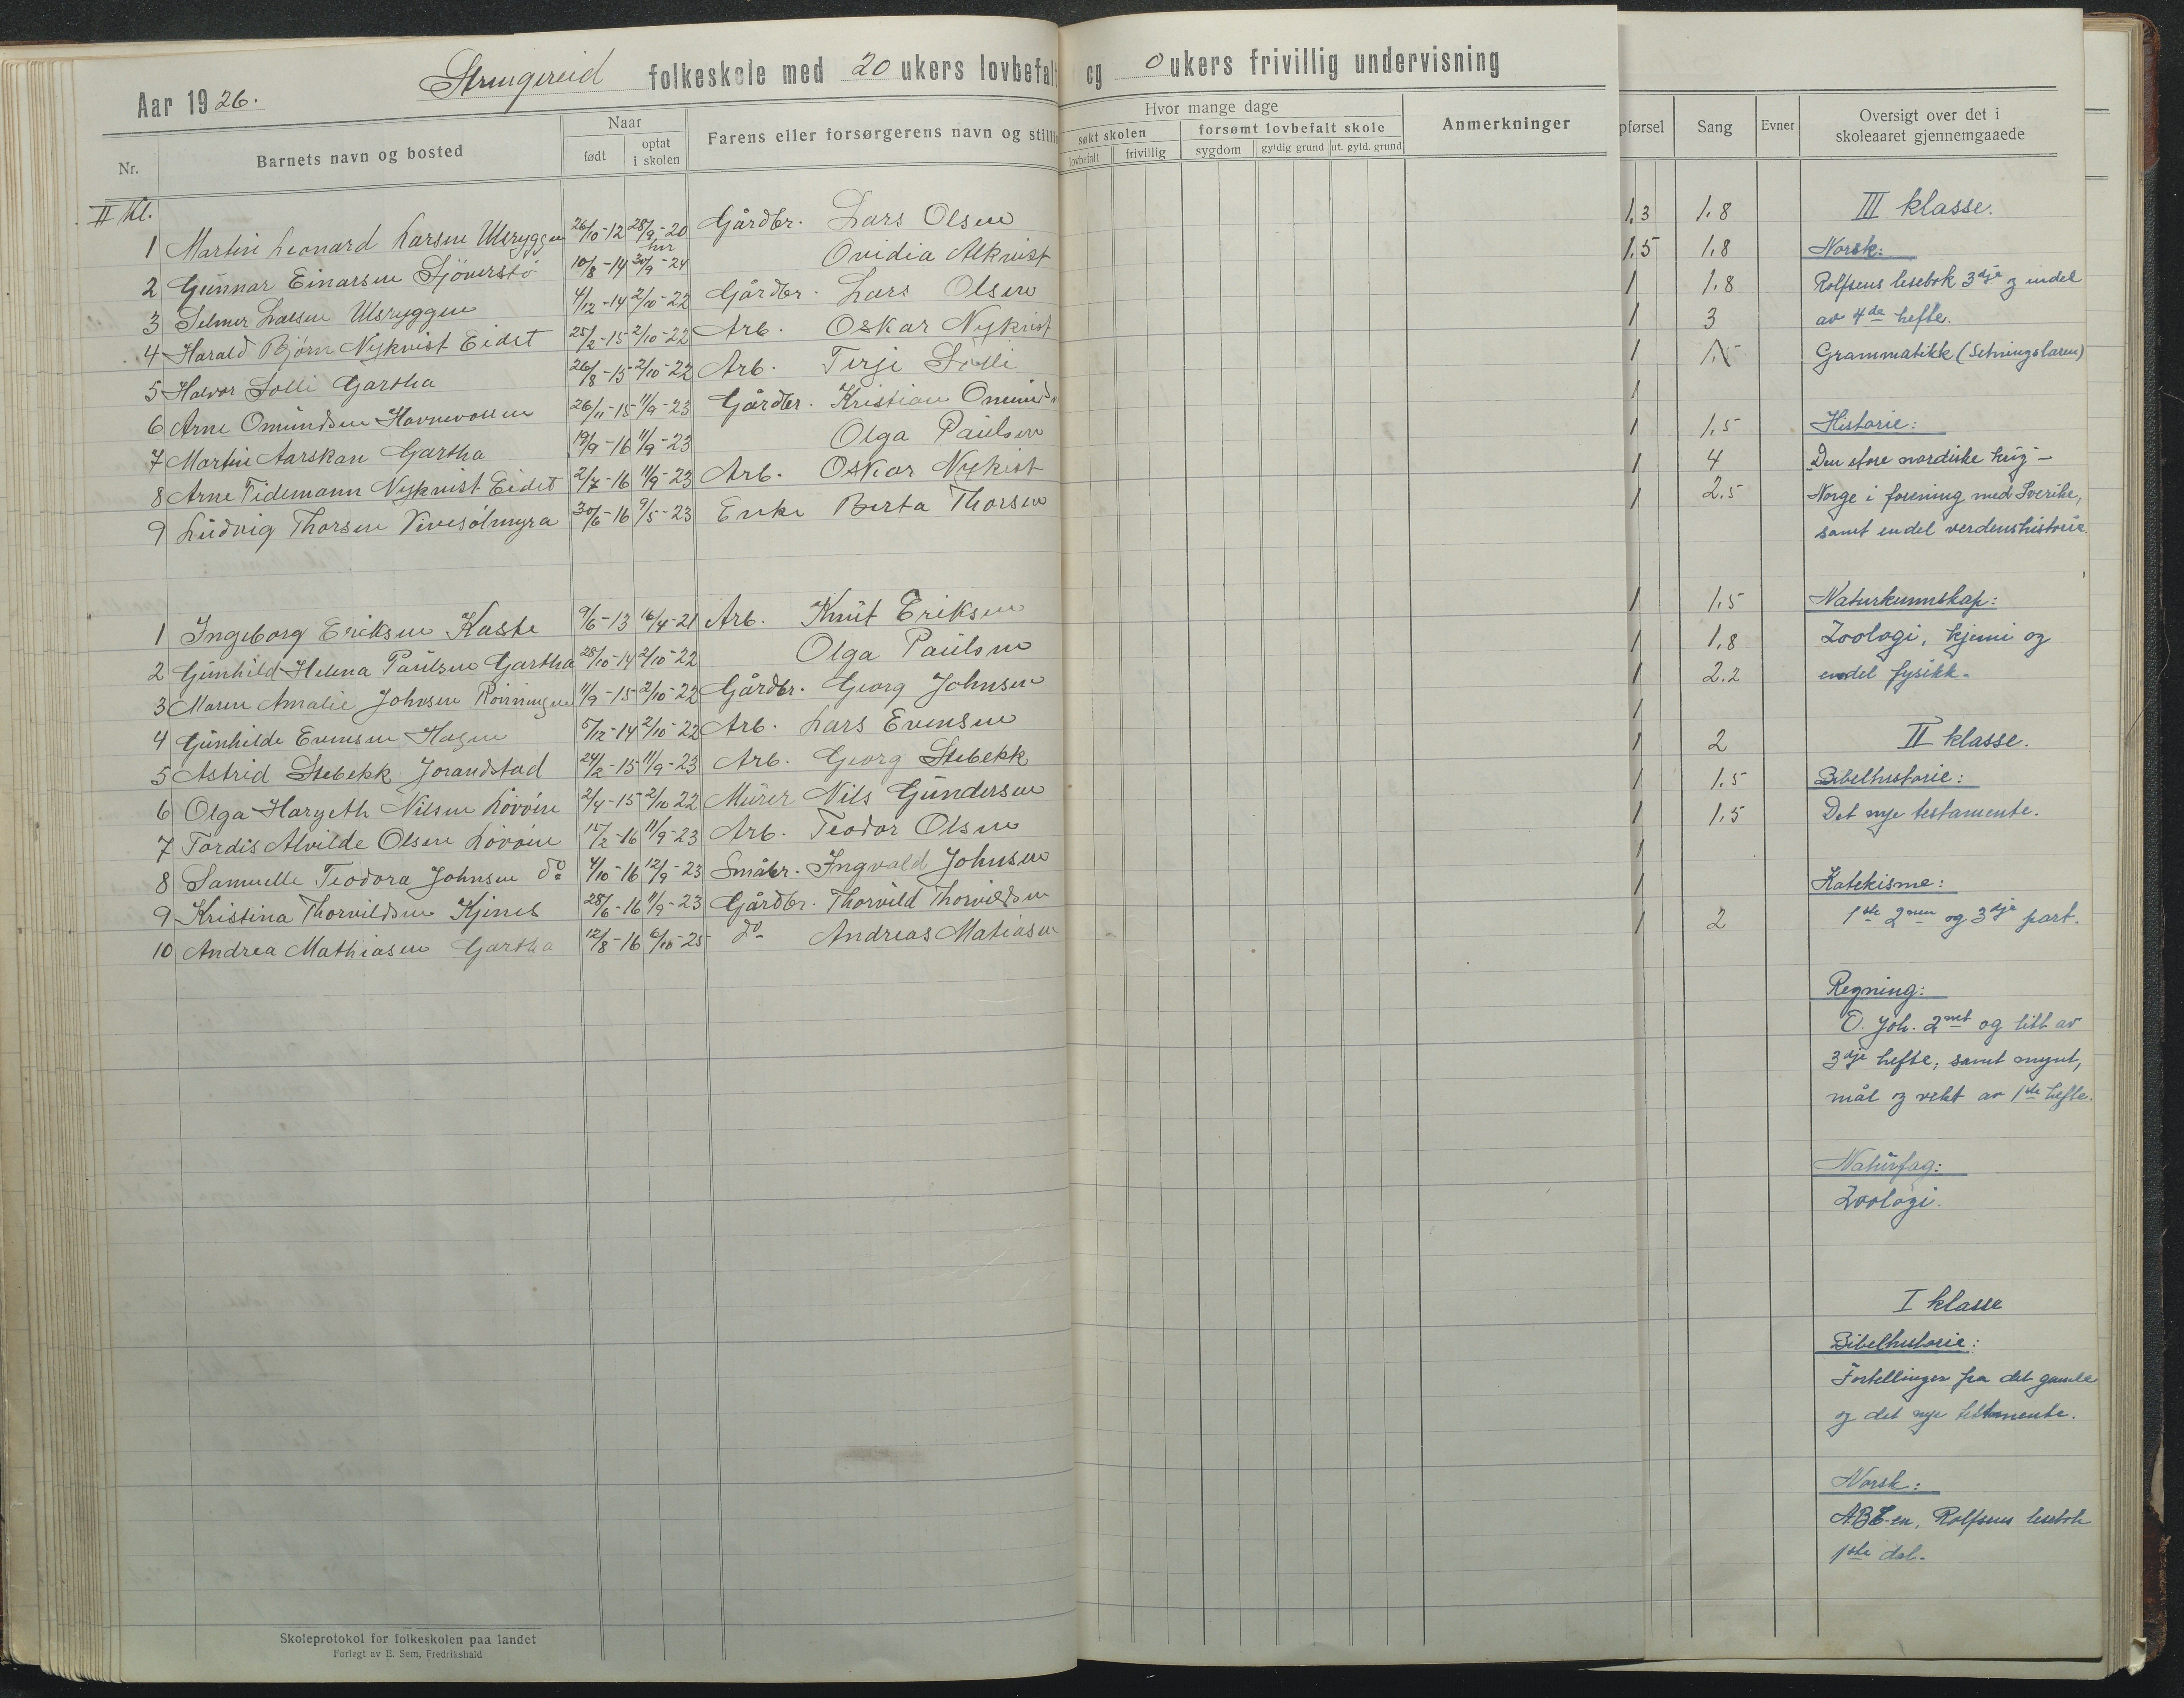 Aar 1926.
Strengereid folkeskole med 20 ukers lovbefalt og 0 ukers frivillig undervisning
Nr.
Barnets navn og bosted
Naar
født
optat i skolen
Farens eller forsørgerens navn og stillin
Hvor mange dage
søkt skolen
forsømt lovbefalt skole
lovbefalt
frivillig
sygdom
gyldig grund
ut. gyld. grund
Anmerkninger
II Kl.
1 Martin Leonard Larsen Ulsryggen 26/10-12 28/9-20 Gårdbr. Lars Olsen
her
2 Gunnar Einarsen Sjöverstö 10/8-14 30/9-24 Ovidia Alkvist
3 Selmer Larsen Ulsryggen 4/12-14 2/10-22 Gårdbr. Lars Olsen
4 Harald Bjørn Nykvist Eidet 25/2-15 2/10-22 Arb. Oskar Nykvist
5 Halvor Solli Gartha 26/8-15 2/10-22 Arb. Terje Solli
6 Arne Omundsen Havnevollen 26/11-15 11/9-23 Gårdbr. Kristian Omunds
7 Martin Aarskan Gartha 19/9-16 11/9-23 Olga Paulsen
8 Arne Tidemann Nykvist Eidet 2/7-16 11/9-23 Arb. Oskar Nykvist
9 Ludvig Thorsen Vevesølmyra 30/6-16 9/5-23 Enke Berta Thorsen
1 Ingeborg Eriksen Kaste 9/6-13 16/4-21 Arb. Knut Eriksen
2 Gunhild Helena Paulsen Gartha 28/10-14 2/10-22 Olga Paulsen
3 Maren Amalie Johnsen Rønningen 11/9-15 2/10-22 Gårdbr. Georg Johnsen
4 Gunhilde Evensen Hagen 5/12-14 2/10-22 Arb. Lars Evensen
5 Astrid Stebekk Jorandstad 24/2-15 11/9-23 Arb. Georg Stebekk
6 Olga Hargeth Nilsen Lövöen 2/4-15 2/10 22 Murer Nils Gundersen
7 Tordis Alvilde Olsen Lövöen 15/2-16 11/9-23 Arb. Teodor Olsen
8 Samuelle Teodora Johnsen do 4/10-16 12/9-23 Småbr. Ingvald Johnsen
9 Kristina Thorvildsen Kjenes 28/6-16 11/9-23 Gårdbr. Thorvild Thorvildsen
10 Andrea Mathiasen Gartha 12/8-16 6/10-25 do Andreas Matiasen
Skoleprotokol for folkeskolen paa landet
Forlagt av E. Sem, Fredrikshald
pførsel
Sang
Evner
Oversigt over det i
skoleaaret gjennemgaaede
1.3 1.8
1.5 1.8
1 1.8
1 3
1
1
1 1.5
1 4
1 2.5
1 1.5
1 1.8
1 2.2
1
1 2
1 1.5
1 1.5
1
1
1 2
III klasse.
Norsk:
Rolfsens lesebok 3dje og endel
av 4de hefte.
Grammatikk (Setningslæren)
Historie:
Den store nordiske krig –
Norge i forening med Sverike,
samt endel verdenshistorie.
Naturkunnskap:
Zoologi, kjemi og
endel fysikk.
II klasse.
Bibelhistorie:
Det nye testamente.
Katekisme:
1ste 2nen og 3dje part.
Regning:
O. Joh. 2net og litt av
3dje hefte, samt mynt,
mål og vekt av 1ste hefte.
Naturfag:
Zoologi.
I klasse
Bibelhistorie:
Fortellinger fra det gamle
og det nye testamente.
Norsk:
ABC-en, Rolfsens lesebok
1ste del.